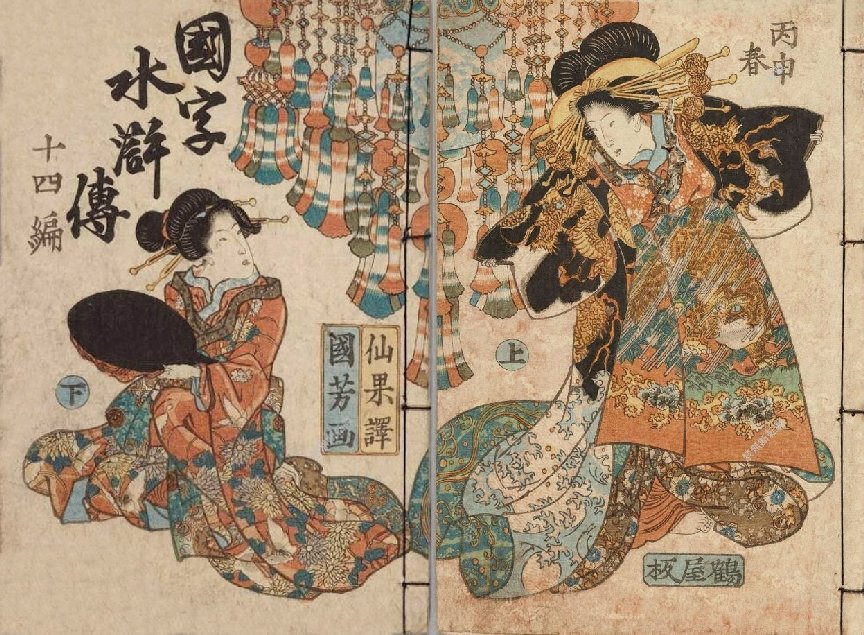 丙申
春
上
鶴屋板
國字
水滸
傳
十四編
仙果譯
國芳画
下